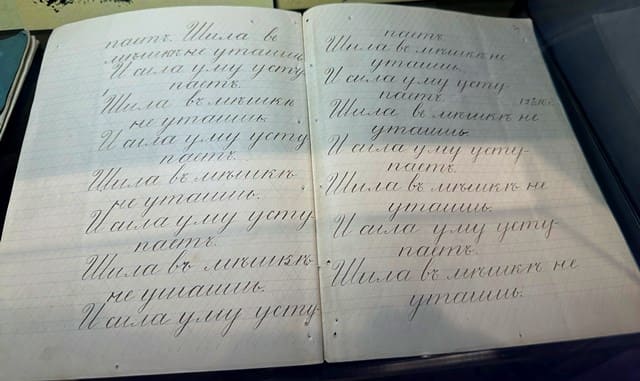 паетъ. Шила въ
мѣшкѣ не утаишь
И сила уму усту
паетъ.
Шила въ мѣшкѣ
не утаишь.
И сила уму усту
паетъ.
Шила въ мѣшкѣ
не утаишь.
И сила уму усту-
паетъ.
Шила въ мѣшкѣ
не утаишь.
И сила уму усту-
паетъ
Шила въ мѣшкѣ не
утаишь.
И сила уму усту-
паетъ.
Шила въ мѣшкѣ не
утаишь
И сила уму усту-
паетъ.
Шила въ мѣшкѣ не
утаишь.
И сила уму усту-
паетъ.
Шила въ мѣшкѣ не
утаишь.